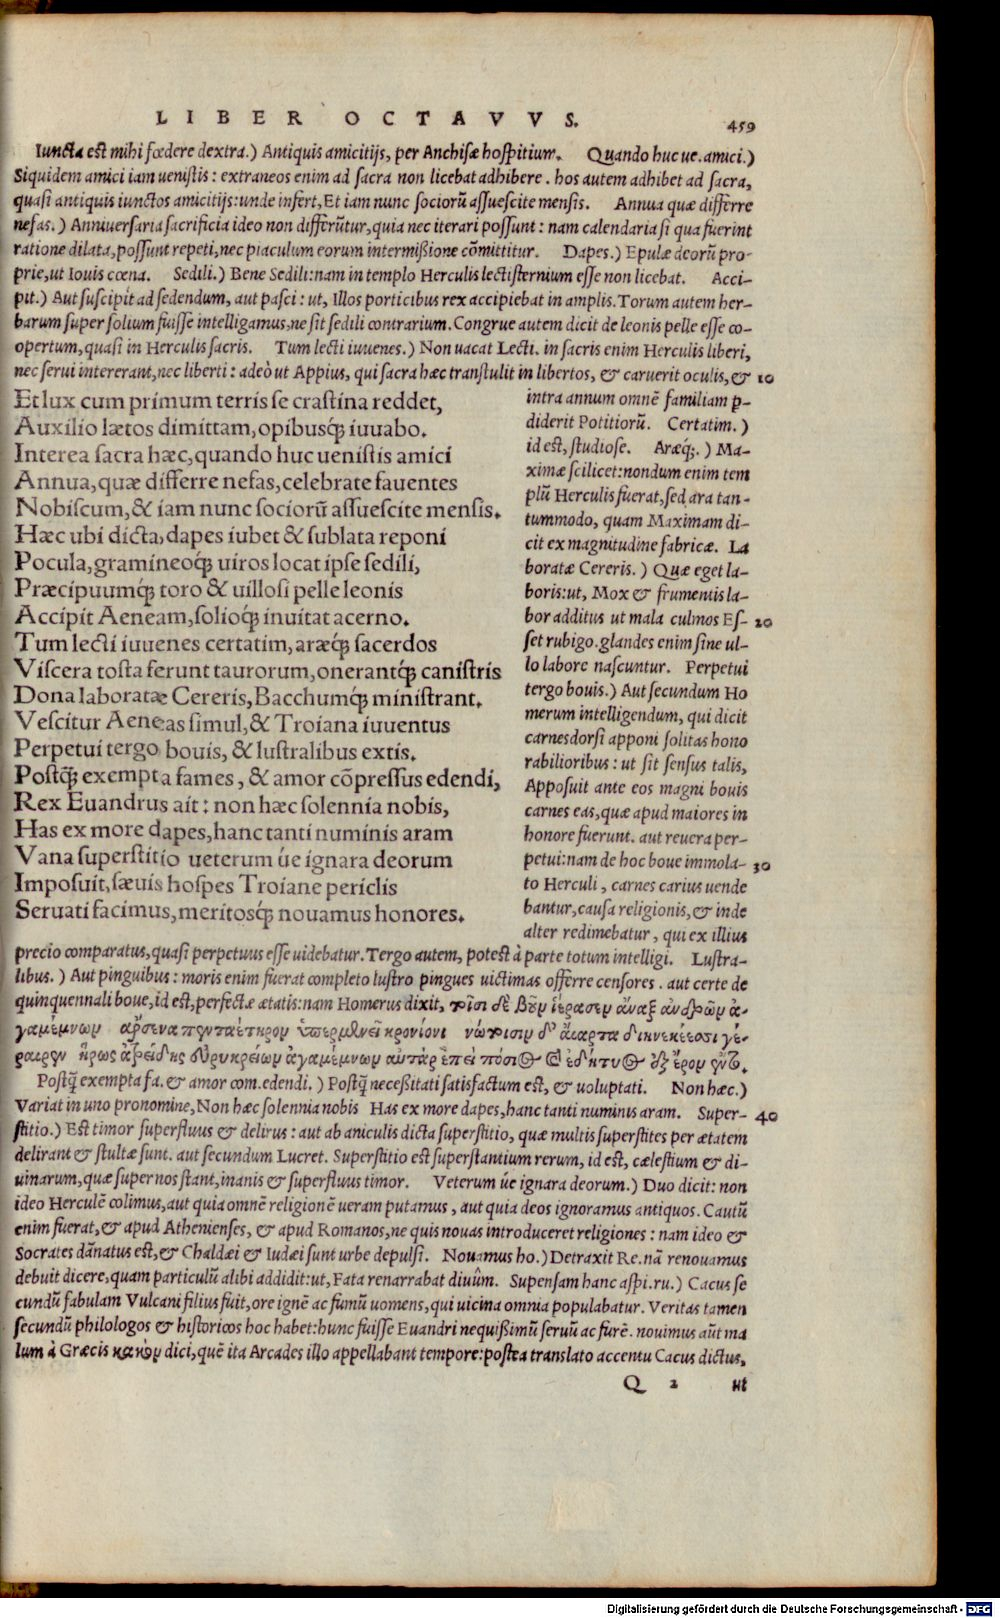 LIBER OCTAVVS.
459
Iuncta est mihi fœdere dextra.) Antiquis amicitijs, per Anchisæ hospitium. Quando huc ue. amici.)
Siquidem amici iam uenistis: extraneos enim ad sacra non licebat adhibere. hos autem adhibet ad sacra,
quasi antiquis iunctos amicitijs: unde infert, Et iam nunc sociorũ assuescite mensis. Annua quæ differre
nefas.) Anniuersaria sacrificia ideo non differũtur, quia nec iterari possunt: nam calendaria si qua fuerint
ratione dilata, possunt repeti, nec piaculum eorum intermißione cõmittitur. Dapes.) Epulæ deorũ pro-
prie, ut Iouis cœna. Sedili.) Bene Sedili: nam in templo Herculis lectisternium esse non licebat. Acci-
pit.) Aut suscipit ad sedendum, aut pasci: ut, Illos porticibus rex accipiebat in amplis. Torum autem her-
barum super solium fuisse intelligamus, ne sit sedili contrarium. Congrue autem dicit de leonis pelle esse co-
opertum, quasi in Herculis sacris. Tum lecti iuuenes.) Non uacat Lecti. in sacris enim Herculis liberi,
nec serui intererant, nec liberti: adeò ut Appius, qui sacra hæc transtulit in libertos, & caruerit oculis, & 10
Et lux cum primum terris se crastina reddet,
Auxilio lætos dimittam, opibusq́; iuuabo.
Interea sacra hæc, quando huc uenistis amici
Annua, quæ differre nefas, celebrate fauentes
Nobiscum, & iam nunc sociorũ assuescite mensis.
Hæc ubi dicta, dapes iubet & sublata reponi
Pocula, gramineoq́; uiros locat ipse sedili,
Præcipuumq́; toro & uillosi pelle leonis
Accipit Aeneam, solioq́; inuitat acerno.
Tum lecti iuuenes certatim, aræq́; sacerdos
Viscera tosta ferunt taurorum, onerantq́; canistris
Dona laboratæ Cereris, Bacchumq́; ministrant.
Vescitur Aeneas simul, & Troiana iuuentus
Perpetui tergo bouis, & lustralibus extis.
Postq̃; exempta fames, & amor cõpressus edendi,
Rex Euandrus ait: non hæc solennia nobis,
Has ex more dapes, hanc tanti numinis aram
Vana superstitio ueterum úe ignara deorum
Imposuit, sæuis hospes Troiane periclis
Seruati facimus, meritosq́; nouamus honores.
intra annum omnẽ familiam p̱-
diderit Potitiorũ. Certatim.)
id est, studiose. Aræq́;.) Ma-
ximæ scilicet: nondum enim tem
plũ Herculis fuerat, sed ara tan-
tummodo, quam Maximam di-
cit ex magnitudine fabricæ. La
boratæ Cereris.) Quæ eget la-
boris: ut, Mox & frumentis la-
bor additus ut mala culmos Es- 20
set rubigo. glandes enim sine ul-
lo labore nascuntur. Perpetui
tergo bouis.) Aut secundum Ho
merum intelligendum, qui dicit
carnes dorsi apponi solitas hono
rabilioribus: ut sit sensus talis,
Apposuit ante eos magni bouis
carnes eas, quæ apud maiores in
honore fuerunt. aut reuera per-
petui: nam de hoc boue immola- 30
to Herculi, carnes carius uende
bantur, causa religionis, & inde
alter redimebatur, qui ex illius
precio comparatus, quasi perpetuus esse uidebatur. Tergo autem, potest à parte totum intelligi. Lustra-
libus.) Aut pinguibus: moris enim fuerat completo lustro pingues uictimas offerre censores. aut certe de
quinquennali boue, id est, perfectæ ætatis: nam Homerus dixit, τοῖσι δὲ βοῦν ἱέρευσεν ἄναξ ἀνδρῶν ἀ-
γαμέμνων ἄρσενα πενταέτηρον ὑπερμενέϊ κρονίονι νώτοισιν δ'
ἀγαμέμνων αὐτὰρ ἐπεὶ πόσιος
Postq̃ exempta fa. & amor com. edendi.) Postq̃ neceßitati satisfactum est, & uoluptati. Non hæc.)
Variat in uno pronomine, Non hæc solennia nobis Has ex more dapes, hanc tanti numinis aram. Super- 40
stitio.) Est timor superfluus & delirus: aut ab aniculis dicta superstitio, quæ multis superstites per ætatem
delirant & stultæ sunt. aut secundum Lucret. Superstitio est superstantium rerum, id est, cælestium & di-
uinarum, quæ super nos stant, inanis & superfluus timor. Veterum úe ignara deorum.) Duo dicit: non
ideo Herculẽ colimus, aut quia omnẽ religionẽ ueram putamus, aut quia deos ignoramus antiquos. Cautũ
enim fuerat, & apud Athenienses, & apud Romanos, ne quis nouas introduceret religiones: nam ideo &
Socrates dãnatus est, & Chaldæi & Iudæi sunt urbe depulsi. Nouamus ho.) Detraxit Re. nã renouamus
debuit dicere, quam particulũ alibi addidit: ut, Fata renarrabat diuûm. Supensam hanc aspi. ru.) Cacus se
cundũ fabulam Vulcani filius fuit, ore ignẽ ac fumũ uomens, qui uicina omnia populabatur. Veritas tamen
secundũ philologos & historicos hoc habet: hunc fuisse Euandri nequißimũ seruũ ac furẽ. nouimus aũt ma
lum à Græcis κακὸν dici, quẽ ita Arcades illo appellabant tempore: postea translato accentu Cacus dictus,
Q 2 ut
Digitalisierung gefördert durch die Deutsche Forschungsgemeinschaft - DFG